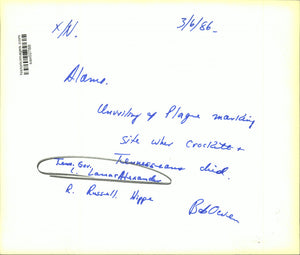 X/N. 3/6/86.
Alamo.
Unveiling of Plaque marking
site wher Crockett +
Tennesseans died.
Tenn. Gov.
Lamar Alexander
R. Russell. Hippe
Bob Owen